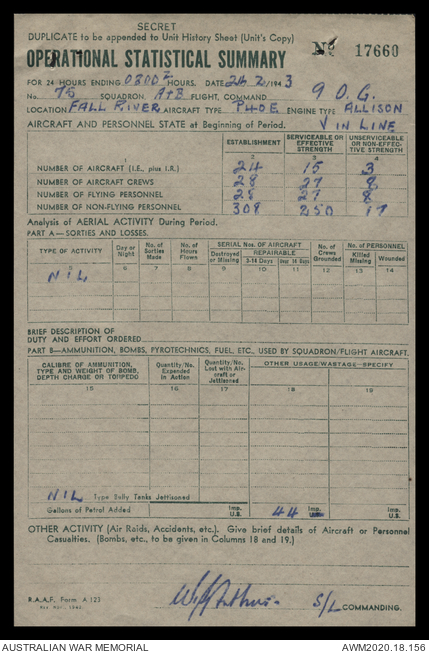 SECRET
DUPLICATE to be appended to Unit History Sheet (Unit's Copy)
OPERATIONAL STATISTICAL SUMMARY
No 17660
FOR 24 HOURS ENDING 0800Z HOURS. DATE 24 2/1943
No. 75 SQUADRON A+B FLIGHT, COMMAND 9 O.G.
LOCATION FALL RIVER AIRCRAFT TYPE P40E ENGINE TYPE ALLISON
AIRCRAFT AND PERSONNEL STATE at Beginning of Period. V IN LINE
ESTABLISHMENT SERVICEABLE OR EFFECTIVE STRENGTH UNSERVICEABLE OR NON-EFFECTIVE STRENGTH
1 2 3 4
NUMBER OF AIRCRAFT (I.E., plus I.R.) 24 15 3
NUMBER OF AIRCRAFT CREWS 28 27 8
NUMBER OF FLYING PERSONNEL 28 27 8
NUMBER OF NON-FLYING PERSONNEL 308 250 17
Analysis of AERIAL ACTIVITY During Period.
PART A—SORTIES AND LOSSES.
TYPE OF ACTIVITY Day or Night No. of Sorties Made No. of Hours Flown SERIAL Nos. OF AIRCRAFT Destroyed or Missing REPAIRABLE 2-14 Days Over 14 Days No. of Crews Grounded No. of PERSONNEL Killed Missing Wounded
5 6 7 8 9 10 11 12 13 14
NIL
BRIEF DESCRIPTION OF
DUTY AND EFFORT ORDERED
PART B—AMMUNITION, BOMBS, PYROTECHNICS, FUEL, ETC., USED BY SQUADRON/FLIGHT AIRCRAFT.
CALIBRE OF AMMUNITION, TYPE AND WEIGHT OF BOMB, DEPTH CHARGE OR TORPEDO Quantity/No. Expended in Action Quantity/No. Lost with Aircraft or Jettisoned OTHER USAGE/WASTAGE—SPECIFY
15 16 17 18 19
NIL Type Belly Tanks Jettisoned
Gallons of Petrol Added Imp. U.S. 44 Imp. U.S. Imp. U.S.
OTHER ACTIVITY (Air Raids, Accidents, etc.). Give brief details of Aircraft or Personnel
Casualties. (Bombs, etc., to be given in Columns 18 and 19.)
R.A.A.F. Form A.123
S/L COMMANDING.
AUSTRALIAN WAR MEMORIAL AWM2020.18.156